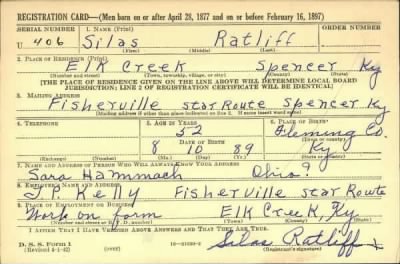 REGISTRATION CARD—(Men born on or after April 28, 1877 and on or before February 16, 1897)
SERIAL NUMBER 1. NAME (Print) ORDER NUMBER
U 406 Silas Ratliff
(First) (Middle) (Last)
2. PLACE OF RESIDENCE (Print)
Elk Creek Spencer Ky
(Number and street) (Town, township, village, or city) (County) (State)
[THE PLACE OF RESIDENCE GIVEN ON THE LINE ABOVE WILL DETERMINE LOCAL BOARD
JURISDICTION; LINE 2 OF REGISTRATION CERTIFICATE WILL BE IDENTICAL]
3. MAILING ADDRESS
Fisherville star Route Spencer Ky
[Mailing address if other than place indicated on line 2. If same insert word same]
4. TELEPHONE 5. AGE IN YEARS 6. PLACE OF BIRTH
52 Fleming Co.
DATE OF BIRTH (Town or county)
8 10 89 Ky
(Exchange) (Number) (Mo.) (Day) (Yr.) (State or country)
7. NAME AND ADDRESS OF PERSON WHO WILL ALWAYS KNOW YOUR ADDRESS
Sara Hammach Ohio?
8. EMPLOYER'S NAME AND ADDRESS
J.P. Kelly Fisherville star Route
9. PLACE OF EMPLOYMENT OR BUSINESS
Work on form Elk Creek, Ky
(Number and street or R. F. D. number) (Town) (County) (State)
I AFFIRM THAT I HAVE VERIFIED ABOVE ANSWERS AND THAT THEY ARE TRUE.
D. S. S. Form 1
(Revised 4-1-42) (over) Silas Ratliff
(Registrant's signature)